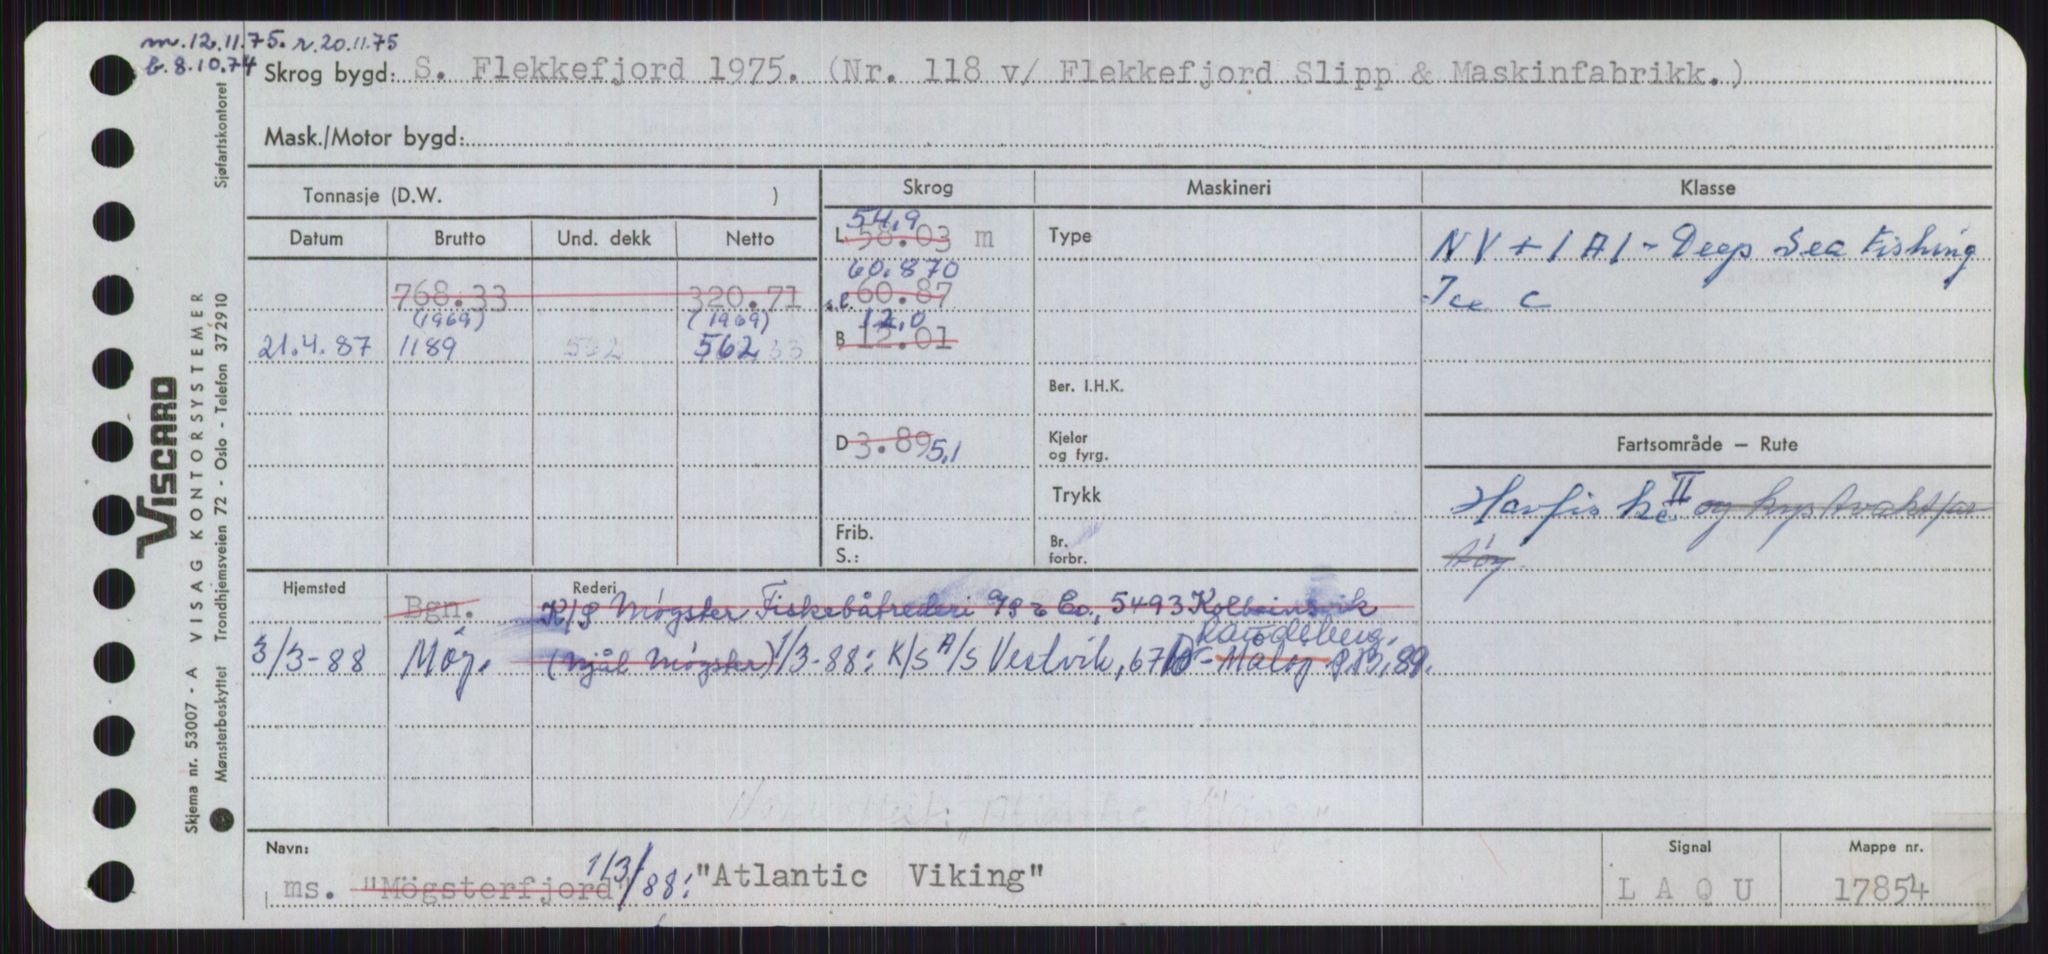 m. 12.11.75. r. 20.11.75
b. 8.10.74
Skrog bygd: S. Flekkefjord 1975. (Nr. 118 v/ Flekkefjord Slipp & Maskinfabrikk.)
Mask./Motor bygd:
Tonnasje (D.W. )
Skrog
Maskineri
Klasse
Datum
Brutto
Und. dekk
Netto
54,9
L 58.03 m
Type
NV + 1A1 - Deep Sea Fishing
Ice C
60.870
768.33
320.71
s.l. 60.87
(1969)
(1969)
12,0
21.4.87
1189
562
B 12.01
Ber. I.H.K.
D 3.89 5,1
Kjeler
og fyrg.
Fartsområde — Rute
Trykk
Havfiske II og kystvaktfar
tøy
Frib.
S.:
Br.
forbr.
Hjemsted
Rederi
Bgn.
K/S Møgster Fiskebåtrederi A/S & Co., 5493 Kolbeinsvik
Raudeberg,
3/3-88
Møy.
(Njål Møgster) 1/3-88: K/S A/S Vestvik, 6710 - Måløy
Atlantic Viking"
Navn:
ms. "Mögsterfjord" 1/3/88: "Atlantic Viking"
Signal
LAQU
Mappe nr.
17854
VISCARD
Skjema nr. 53007 - A VISAG KONTORSYSTEMER
Mønsterbeskyttet Trondhjemsveien 72 - Oslo - Telefon 372910 Sjøfartskontoret